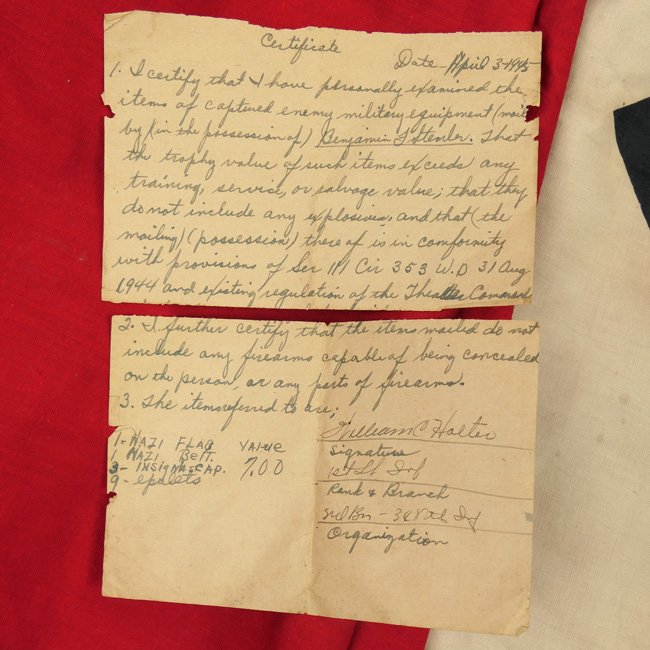 Certificate
Date - April 3 - 1945
1. I certify that I have personally examined the
items of captured enemy military equipment (mail
by) (in the possession of) Benjamin J Stemler. That
the trophy value of such items exceeds any
training, service, or salvage value; that they
do not include any explosives, and that (the
mailing) (possession) thereof is in conformity
with provisions of Sec III Cir 353 W.D 31 Aug
1944 and existing regulation of the Theatter Command
2. I further certify that the items mailed do not
include any firearms capable of being concealed
on the person, or any parts of firearms.
3. The items referred to are;
1 - NAZI FLAG VALUE
1 NAZI BELT. 7.00
3 - INSIGNAS CAP.
9 - epalets
William C Holter
Signature
1st Lt Inf
Rank & Branch
3rd Bn - 348th Inf
Organization